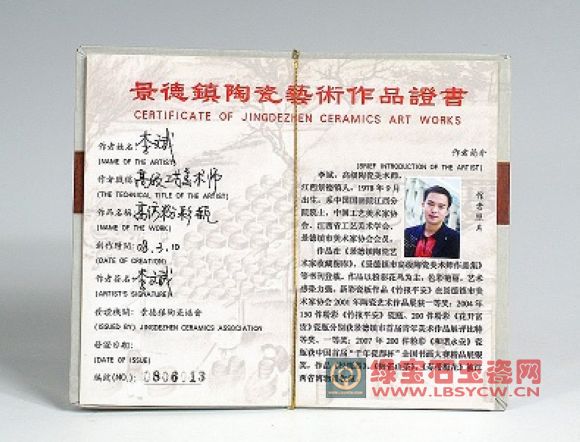 景德鎮陶瓷藝術作品證書
CERTIFICATE OF JINGDEZHEN CERAMICS ART WORKS
作者姓名: 李斌
(NAME OF THE ARTIST)
作者職稱 高级工艺美术师
(THE TECHNICAL TITLE OF THE ARTIST)
作品名稱 粉彩瓶
(NAME OF THE WORK)
創作時間 08.3.10
(DATE OF CREATION)
作者簽名: 李斌
(ARTIST'S SIGNATURE)
發證機關: 景德鎮陶瓷協會
(ISSUED BY) JINGDEZHEN CERAMICS ASSOCIATION
發證日期:
(DATE OF ISSUE)
編號(NO.): 0806013
作者簡介
(BRIEF INTRODUCTION OF THE ARTIST)
李斌,高级陶瓷美术师。
江西景德镇人,1978年9月
出生,系中国国画院江西分
院院士,中国工艺美术家协
会、江西省工艺美术学会、
景德镇市美术家协会会员。
作品在《景德镇陶瓷艺
术家收藏指南》、《景德镇市高级陶瓷美术师作品集》
等书刊登载。作品以粉彩花鸟为主,色彩艳丽,艺术
感染力强,新彩瓷板作品《竹报平安》在景德镇市美
术家协会2001年陶瓷艺术作品展获一等奖;2004年
150件粉彩《竹报平安》瓷瓶、200件粉彩《花开富
贵》瓷瓶分别获景德镇市首届青年美术作品展评比特
等奖、一等奖;2007年200件粉彩《和谐永安》瓷
瓶获中国首届“千年瓷都杯”全国书画大赛精品展银
奖。作品
西省博物馆
作者照片
绿宝石玉瓷网
WWW.LBSYCW.CN